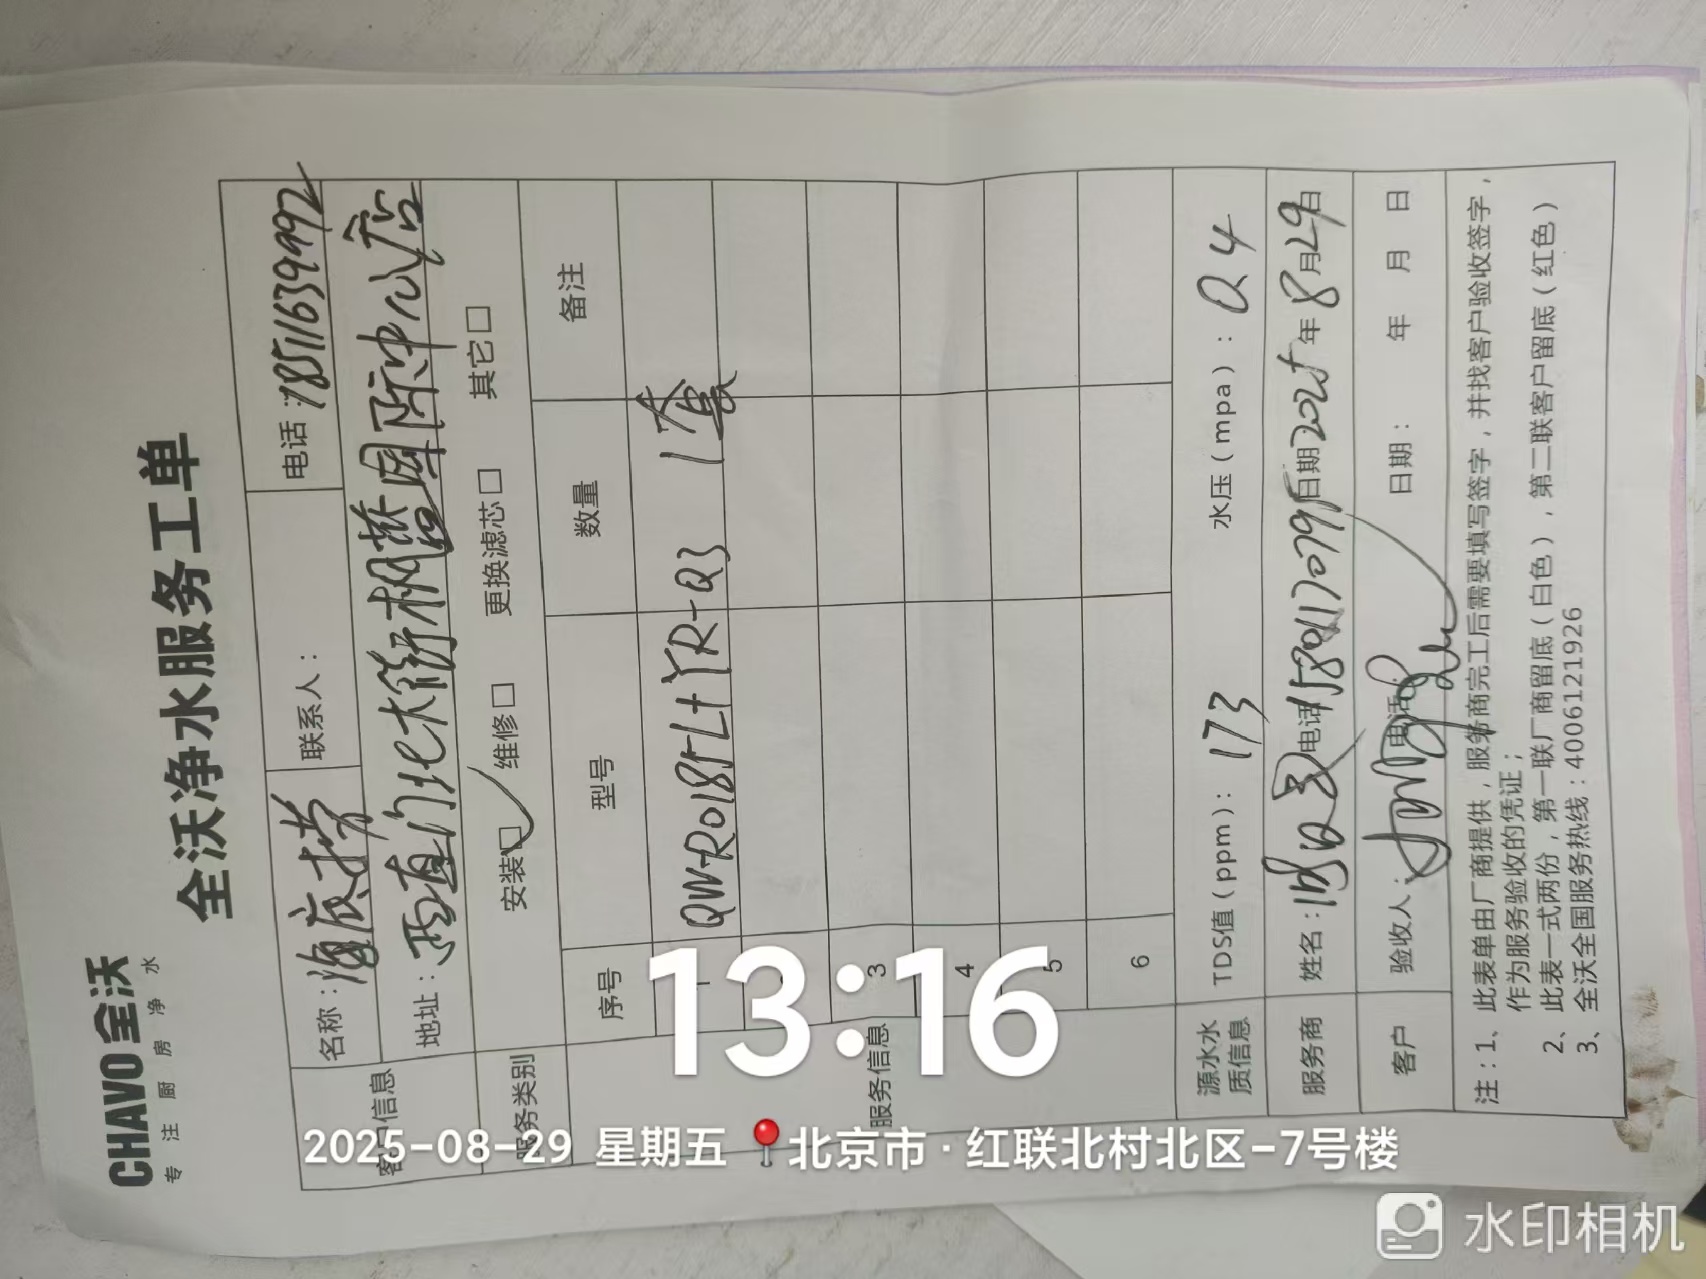 CHAVO 全沃
专注厨房净水
全沃净水服务工单
客户信息 名称：海底捞 联系人： 电话：18511639992
地址：西直门北大街桐盛国际中心店
服务类别 安装☑ 维修□ 更换滤芯□ 其它□
服务信息 序号 型号 数量 备注
1 QW-RO185L+YR-Q3 1套
3
4
5
6
源水水质信息 TDS值（ppm）：173 水压（mpa）：0.4
服务商 姓名： 电话 15801170799 日期2025年8月29日
客户 验收人： 电话： 日期： 年 月 日
注：1、此表单由厂商提供，服务商完工后需要填写签字，并找客户验收签字，
作为服务验收的凭证；
2、此表一式两份，第一联厂商留底（白色），第二联客户留底（红色）
3、全沃全国服务热线：4006121926
13:16
2025-08-29 星期五 北京市·红联北村北区-7号楼
水印相机